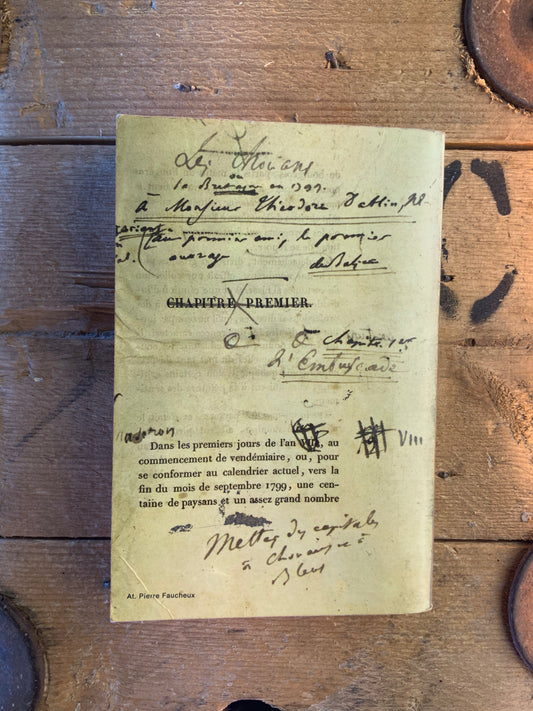 Les Chouans
ou
la Bretagne en 1799.
à Monsieur Théodore Dablin,
au premier ami, le premier
ouvrage
de Balzac
CHAPITRE PREMIER.
chapitre 1er
L'Embuscade
Dans les premiers jours de l'an VIII, au
VIII
commencement de vendémiaire, ou, pour
se conformer au calendrier actuel, vers la
fin du mois de septembre 1799, une cen-
taine de paysans et un assez grand nombre
Mettez des capitales
à
At. Pierre Faucheux